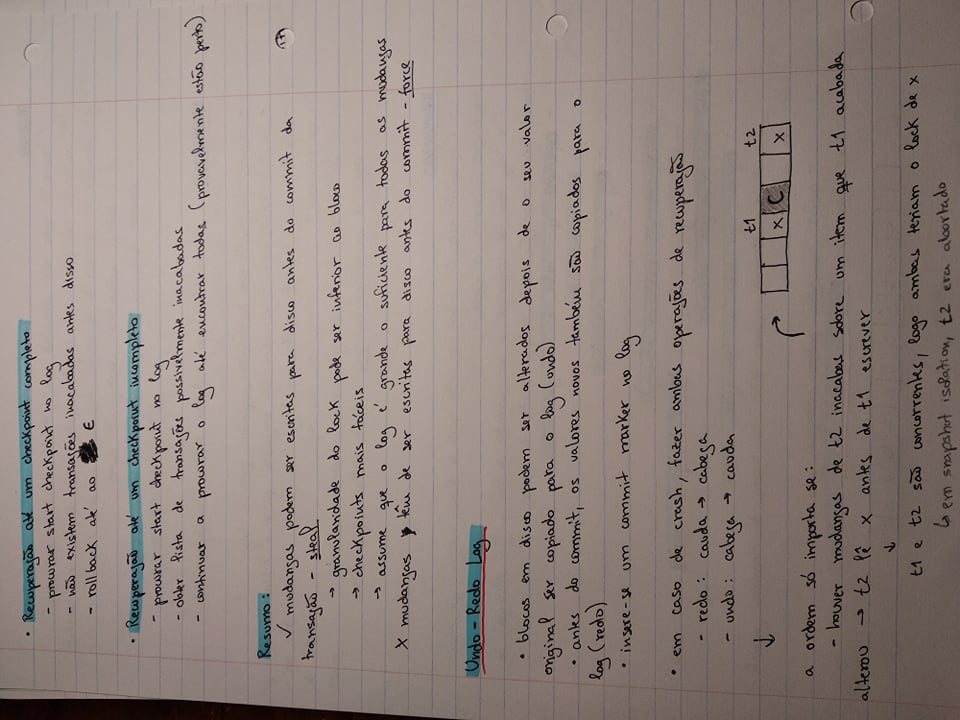 • Recuperação até um checkpoint completo
- procurar start checkpoint no log
- não existem transações inacabadas antes disso
- rollback até ao E
• Recuperação até um checkpoint incompleto
- procurar start checkpoint no log
- obter lista de transações possivelmente inacabadas
- continuar a procurar o log até encontrar todas (provavelmente estão perto)
Resumo:
✓ mudanças podem ser escritas para disco antes do commit da
transação - steal
→ granularidade do lock pode ser inferior ao bloco
→ checkpoints mais fáceis
→ assume que o log é grande o suficiente para todas as mudanças
X mudanças têm de ser escritas para disco antes do commit - force
Undo-Redo Log
• blocos em disco podem ser alterados depois de o seu valor
original ser copiado para o log (undo)
• antes do commit, os valores novos também são copiados para o
log (redo)
• insere-se um commit marker no log
• em caso de crash, fazer ambas operações de recuperação
- redo: cauda → cabeça
- undo: cabeça → cauda
↓
t1 t2
x C x
a ordem só importa se:
- houver mudanças de t2 inacabas sobre um item que t1 acabada
alterou → t2 lê x antes de t1 escrever
↓
t1 e t2 são concorrentes, logo ambas teriam o lock de x
↳ em snapshot isolation, t2 era abortado